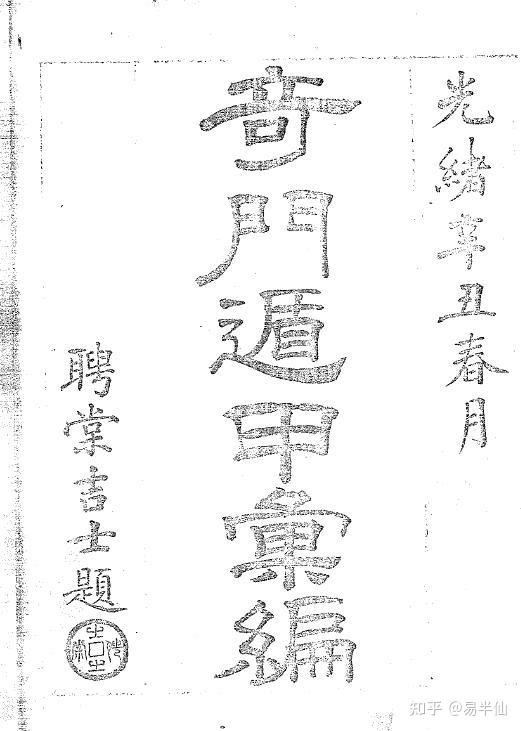 光緒辛丑春月
奇門遁甲彙編
聘棠吉士題
知乎 @易半仙